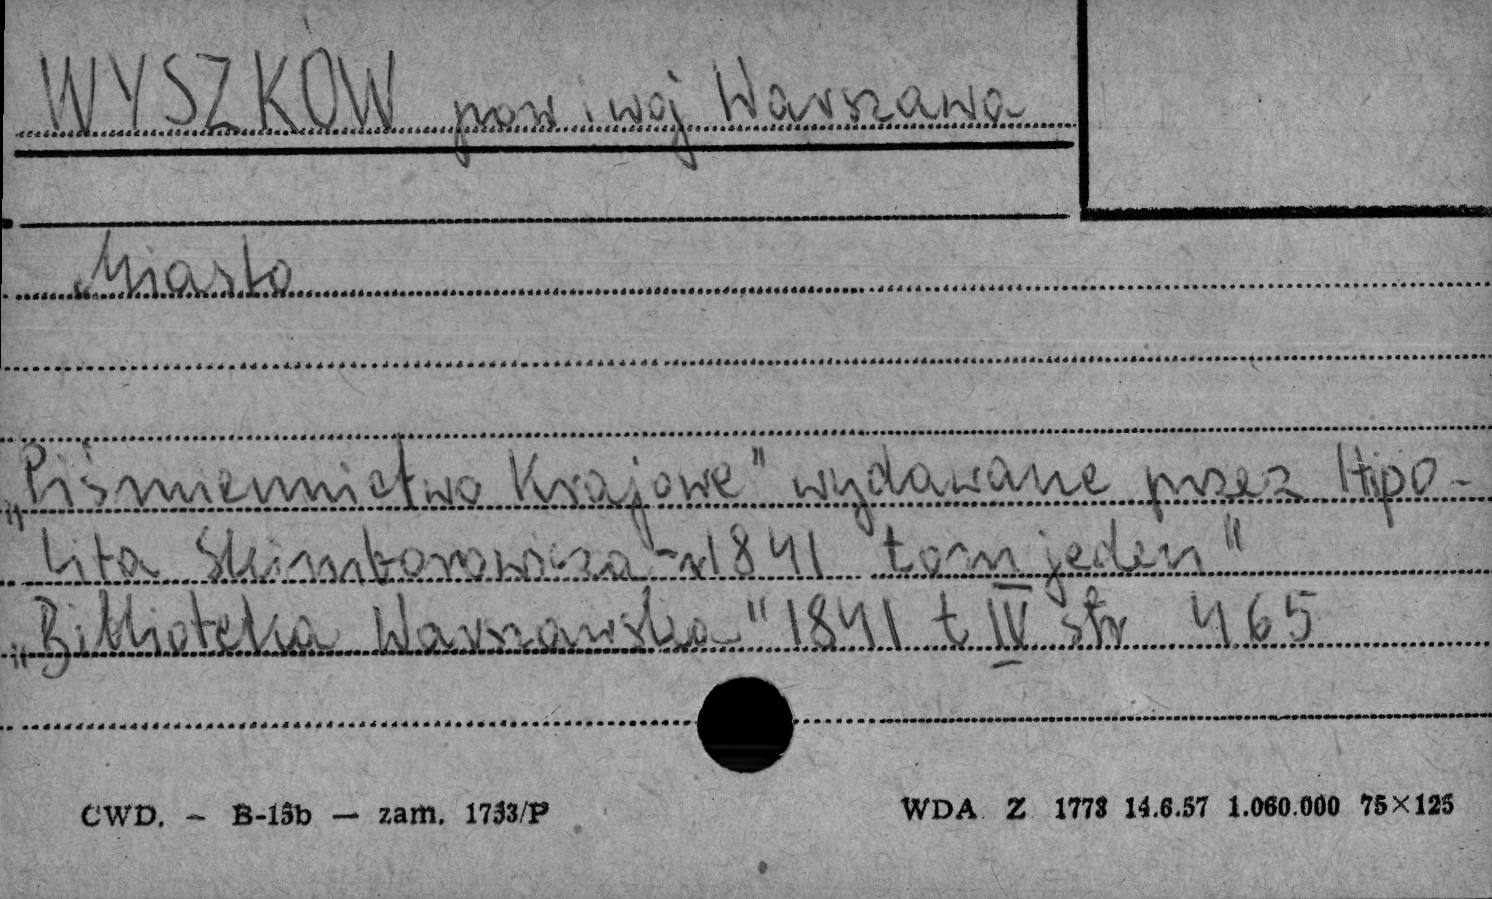 WYSZKÓW pow i woj Warszawa
Miasto
„Piśmiennictwo Krajowe" wydawane przez Hipo-
lita Skimborowicza - r 1841 tom jeden"
„Biblioteka Warszawska" 1841 t IV str 465
CWD. — B-15b — zam. 1733/P
WDA Z 1773 14.6.57 1.060.000 75×125